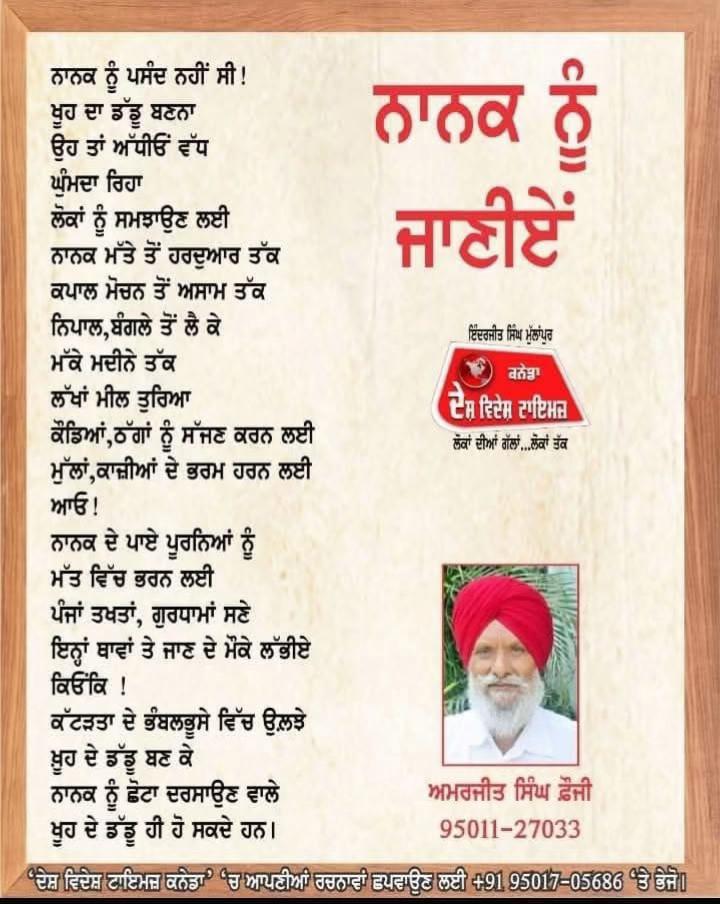 ਨਾਨਕ ਨੂੰ ਪਸੰਦ ਨਹੀਂ ਸੀ!
ਖੂਹ ਦਾ ਡੱਡੂ ਬਣਨਾ
ਉਹ ਤਾਂ ਅੱਧੀਓਂ ਵੱਧ
ਘੁੰਮਦਾ ਰਿਹਾ
ਲੋਕਾਂ ਨੂੰ ਸਮਝਾਉਣ ਲਈ
ਨਾਨਕ ਮੱਤੇ ਤੋਂ ਹਰਦੁਆਰ ਤੱਕ
ਕਪਾਲ ਮੋਚਨ ਤੋਂ ਅਸਾਮ ਤੱਕ
ਨਿਪਾਲ,ਬੰਗਲੇ ਤੋਂ ਲੈ ਕੇ
ਮੱਕੇ ਮਦੀਨੇ ਤੱਕ
ਲੱਖਾਂ ਮੀਲ ਤੁਰਿਆ
ਕੌਡਿਆਂ,ਠੱਗਾਂ ਨੂੰ ਸੱਜਣ ਕਰਨ ਲਈ
ਮੁੱਲਾਂ,ਕਾਜ਼ੀਆਂ ਦੇ ਭਰਮ ਹਰਨ ਲਈ
ਆਓ!
ਨਾਨਕ ਦੇ ਪਾਏ ਪੂਰਨਿਆਂ ਨੂੰ
ਮੱਤ ਵਿੱਚ ਭਰਨ ਲਈ
ਪੰਜਾਂ ਤਖਤਾਂ, ਗੁਰਧਾਮਾਂ ਸਣੇ
ਇਨ੍ਹਾਂ ਥਾਵਾਂ ਤੇ ਜਾਣ ਦੇ ਮੌਕੇ ਲੱਭੀਏ
ਕਿਓਂਕਿ !
ਕੱਟੜਤਾ ਦੇ ਭੰਬਲਭੂਸੇ ਵਿੱਚ ਉਲਝੇ
ਖ਼ੂਹ ਦੇ ਡੱਡੂ ਬਣ ਕੇ
ਨਾਨਕ ਨੂੰ ਛੋਟਾ ਦਰਸਾਉਣ ਵਾਲੇ
ਖੂਹ ਦੇ ਡੱਡੂ ਹੀ ਹੋ ਸਕਦੇ ਹਨ।
ਨਾਨਕ ਨੂੰ
ਜਾਣੀਏਂ
ਇੰਦਰਜੀਤ ਸਿੰਘ ਮੁੱਲਾਂਪੁਰ
ਕਨੇਡਾ
ਦੇਸ਼ ਵਿਦੇਸ਼ ਟਾਇਮਜ਼
ਲੋਕਾਂ ਦੀਆਂ ਗੱਲਾਂ...ਲੋਕਾਂ ਤੱਕ
ਅਮਰਜੀਤ ਸਿੰਘ ਫ਼ੌਜੀ
95011-27033
'ਦੇਸ਼ ਵਿਦੇਸ਼ ਟਾਇਮਜ਼ ਕਨੇਡਾ' 'ਚ ਆਪਣੀਆਂ ਰਚਨਾਵਾਂ ਛਪਵਾਉਣ ਲਈ +91 95017-05686 'ਤੇ ਭੇਜੋ।